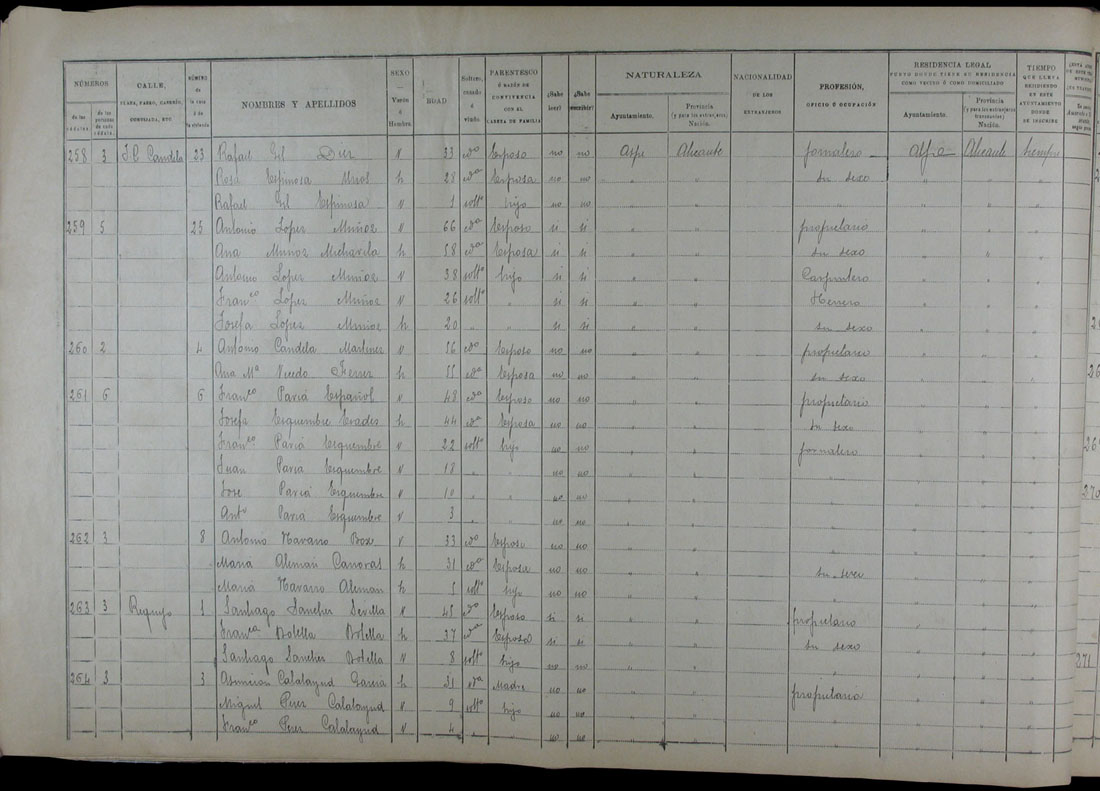 NÚMEROS
de las cédulas.
de las personas de cada cédula.
CALLE,
PLAZA, PASEO, CASERÍO,
CORTIJADA, ETC
NÚMERO de la casa ó de la vivienda
NOMBRES Y APELLIDOS
SEXO Varón ó Hembra.
EDAD
Soltero, casado ó viudo
PARENTESCO
Ó RAZÓN DE CONVIVENCIA CON EL CABEZA DE FAMILIA
¿Sabe leer?
¿Sabe escribir?
NATURALEZA
Ayuntamiento.
Provincia (y para los extranjeros) Nación.
NACIONALIDAD
DE LOS
EXTRANJEROS
PROFESIÓN,
OFICIO Ó OCUPACIÓN
RESIDENCIA LEGAL
PUNTO DONDE TIENE SU RESIDENCIA
COMO VECINO Ó COMO DOMICILIADO
Ayuntamiento.
Provincia (y para los extranjeros transeuntes) Nación.
TIEMPO
QUE LLEVA RESIDIENDO EN ESTE AYUNTAMIENTO DONDE SE INSCRIBE
258 3 J. C. Candela 23 Rafael Gil Diez v 33 cdo Esposo no no Aspe Alicante jornalero Alicante siempre
Rosa Espinosa h 28 cda Esposa no no " " su sexo " " "
Rafael Gil Espinosa v 1 solto hijo no no " " " " " "
259 5 25 Antonio Lopez Muñoz v 66 cdo Esposo si si " " propietario " " "
Ana Muñoz Michavila h 58 cda Esposa si si " " su sexo " " "
Antonio Lopez Muñoz v 38 solto hijo si si " " Carpintero " " "
Franco Lopez Muñoz v 26 solto " si si " " Herrero " " "
Josefa Lopez Muñoz h 20 " " si si " " su sexo " " "
260 2 4 Antonio Candela Martinez v 56 cdo Esposo no no " " propietario " " "
Ana Mª Vicedo Ferrer h 55 cda Esposa no no " " su sexo " " "
261 6 6 Franco Pavia Español v 48 cdo Esposo no no " " propietario " " "
Josefa Esquembre h 44 cda Esposa no no " " su sexo " " "
Franco Pavia Esquembre v 22 solto hijo no no " " jornalero " " "
Juan Pavia Esquembre v 18 " " no no " " " " "
Jose Pavia Esquembre v 10 " " no no " " " " "
Anto Pavia Esquembre v 3 " " no no " " " " "
262 3 8 Antonio Navarro v 33 cdo Esposo no no " " " " "
Maria Aleman h 31 cda Esposa no no " " su sexo " " "
Maria Navarro Aleman h 5 solto hijo no no " " " " "
263 3 1 Santiago Sanchez Sevilla v 45 cdo Esposo si si " " propietario " " "
Franca Botella Botella h 37 cda Esposa si si " " su sexo " " "
Santiago Sanchez Botella v 8 solto hijo no no " " " " "
264 3 3 Asuncion Calatayud Garcia h 31 Madre no no " " propietaria " " "
Miguel Perez Calatayud v 9 solto hijo no no " " " " "
Franco Perez Calatayud v 4 " " no no " " " " "
270
271